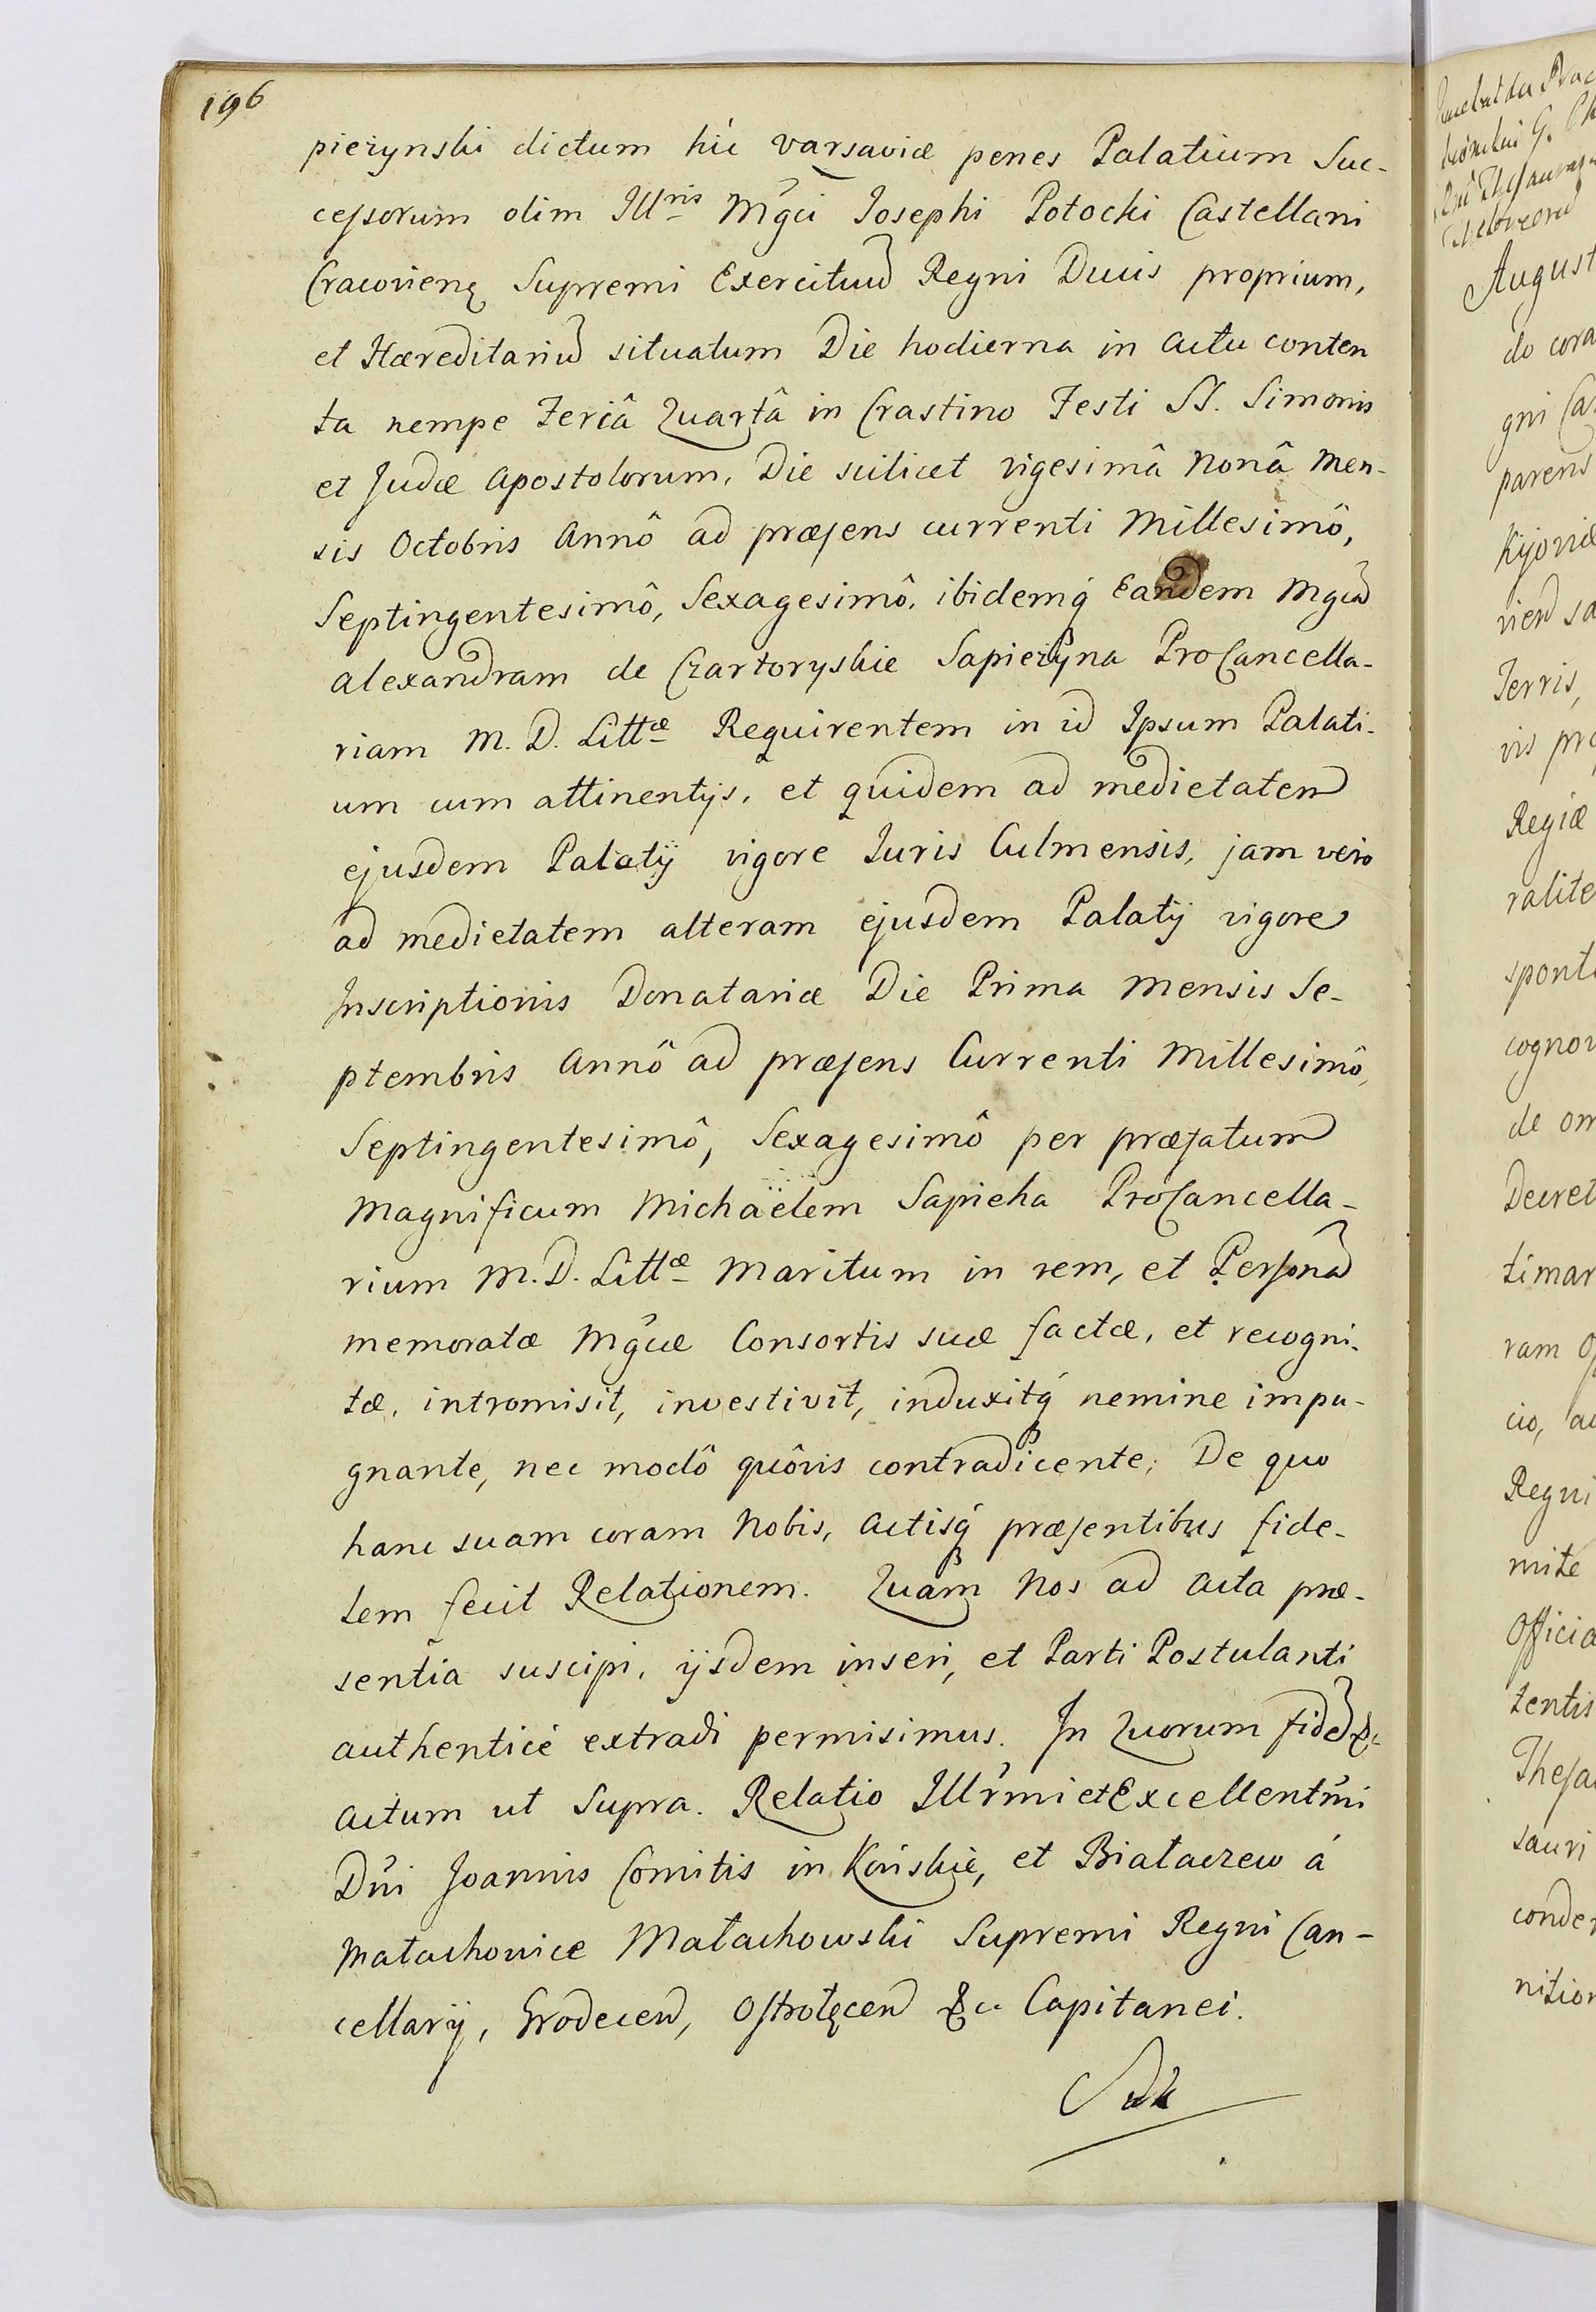 196
pieżynski dictum hic Varsaviæ penes Palatium Suc-
cessorum olim Illris Mgci Josephi Potocki Castellani
Cracovien Supremi Exercituu Regni Ducis proprium,
et Hæreditariu situatum Die hodierna in actu conten
ta nempe Feriâ Quartâ in Crastino Festi SS. Simonis
et Judæ Apostolorum, Die scilicet vigesimâ Nonâ Men-
sis Octobris Annô ad præsens currenti Millesimô,
Septingentesimô, Sexagesimô, ibidemq́ Eandem Mgcam
Alexandram de Czartoryskie Sapieżyna ProCancella-
riam M. D. Littæ Requirentem in id Ipsum Palati-
um cum attinentijs, et quidem ad medietatem
ejusdem Palatij vigore Juris Culmensis, jam vero
ad medietatem alteram ejusdem Palatij vigore
Inscriptionis Donatariæ Die Prima Mensis Se-
ptembris Annô ad præsens Currenti Millesimô,
Septingentesimô, Sexagesimô per præfatum
Magnificum Michaëlem Sapieha ProCancella-
rium M. D. Littæ Maritum in rem, et Personam
memoratæ Mgcæ Consortis suæ factæ, et recogni-
tæ, intromisit, investivit, induxitq́ nemine impu-
gnante, nec modô quôvis contradicente; De quo
hanc suam coram Nobis, Actisq́ præsentibus fide-
lem fecit Relationem. Quam Nos ad Acta præ-
sentia suscipi, ijsdem inseri, et Parti Postulanti
authenticè extradi permisimus. In Quorum fidem &c
Actum ut Supra. Relatio Illrmi et Excellentmi
Dni Joannis Comitis in Końskie, et Białaczew á
Małachowice Małachowski Supremi Regni Can-
cellarij, Grodecen, Ostrołęcen &c Capitanei.
August
do cora
gni Ca
parens
Kijoviæ
vien sa
Terris,
vis pro
Regiæ
ralite
sponte
cognov
de om
Decret
timar
ram
cio, ac
Regni
mite
Officio
tentis
Thesa
sauri
conde
nition